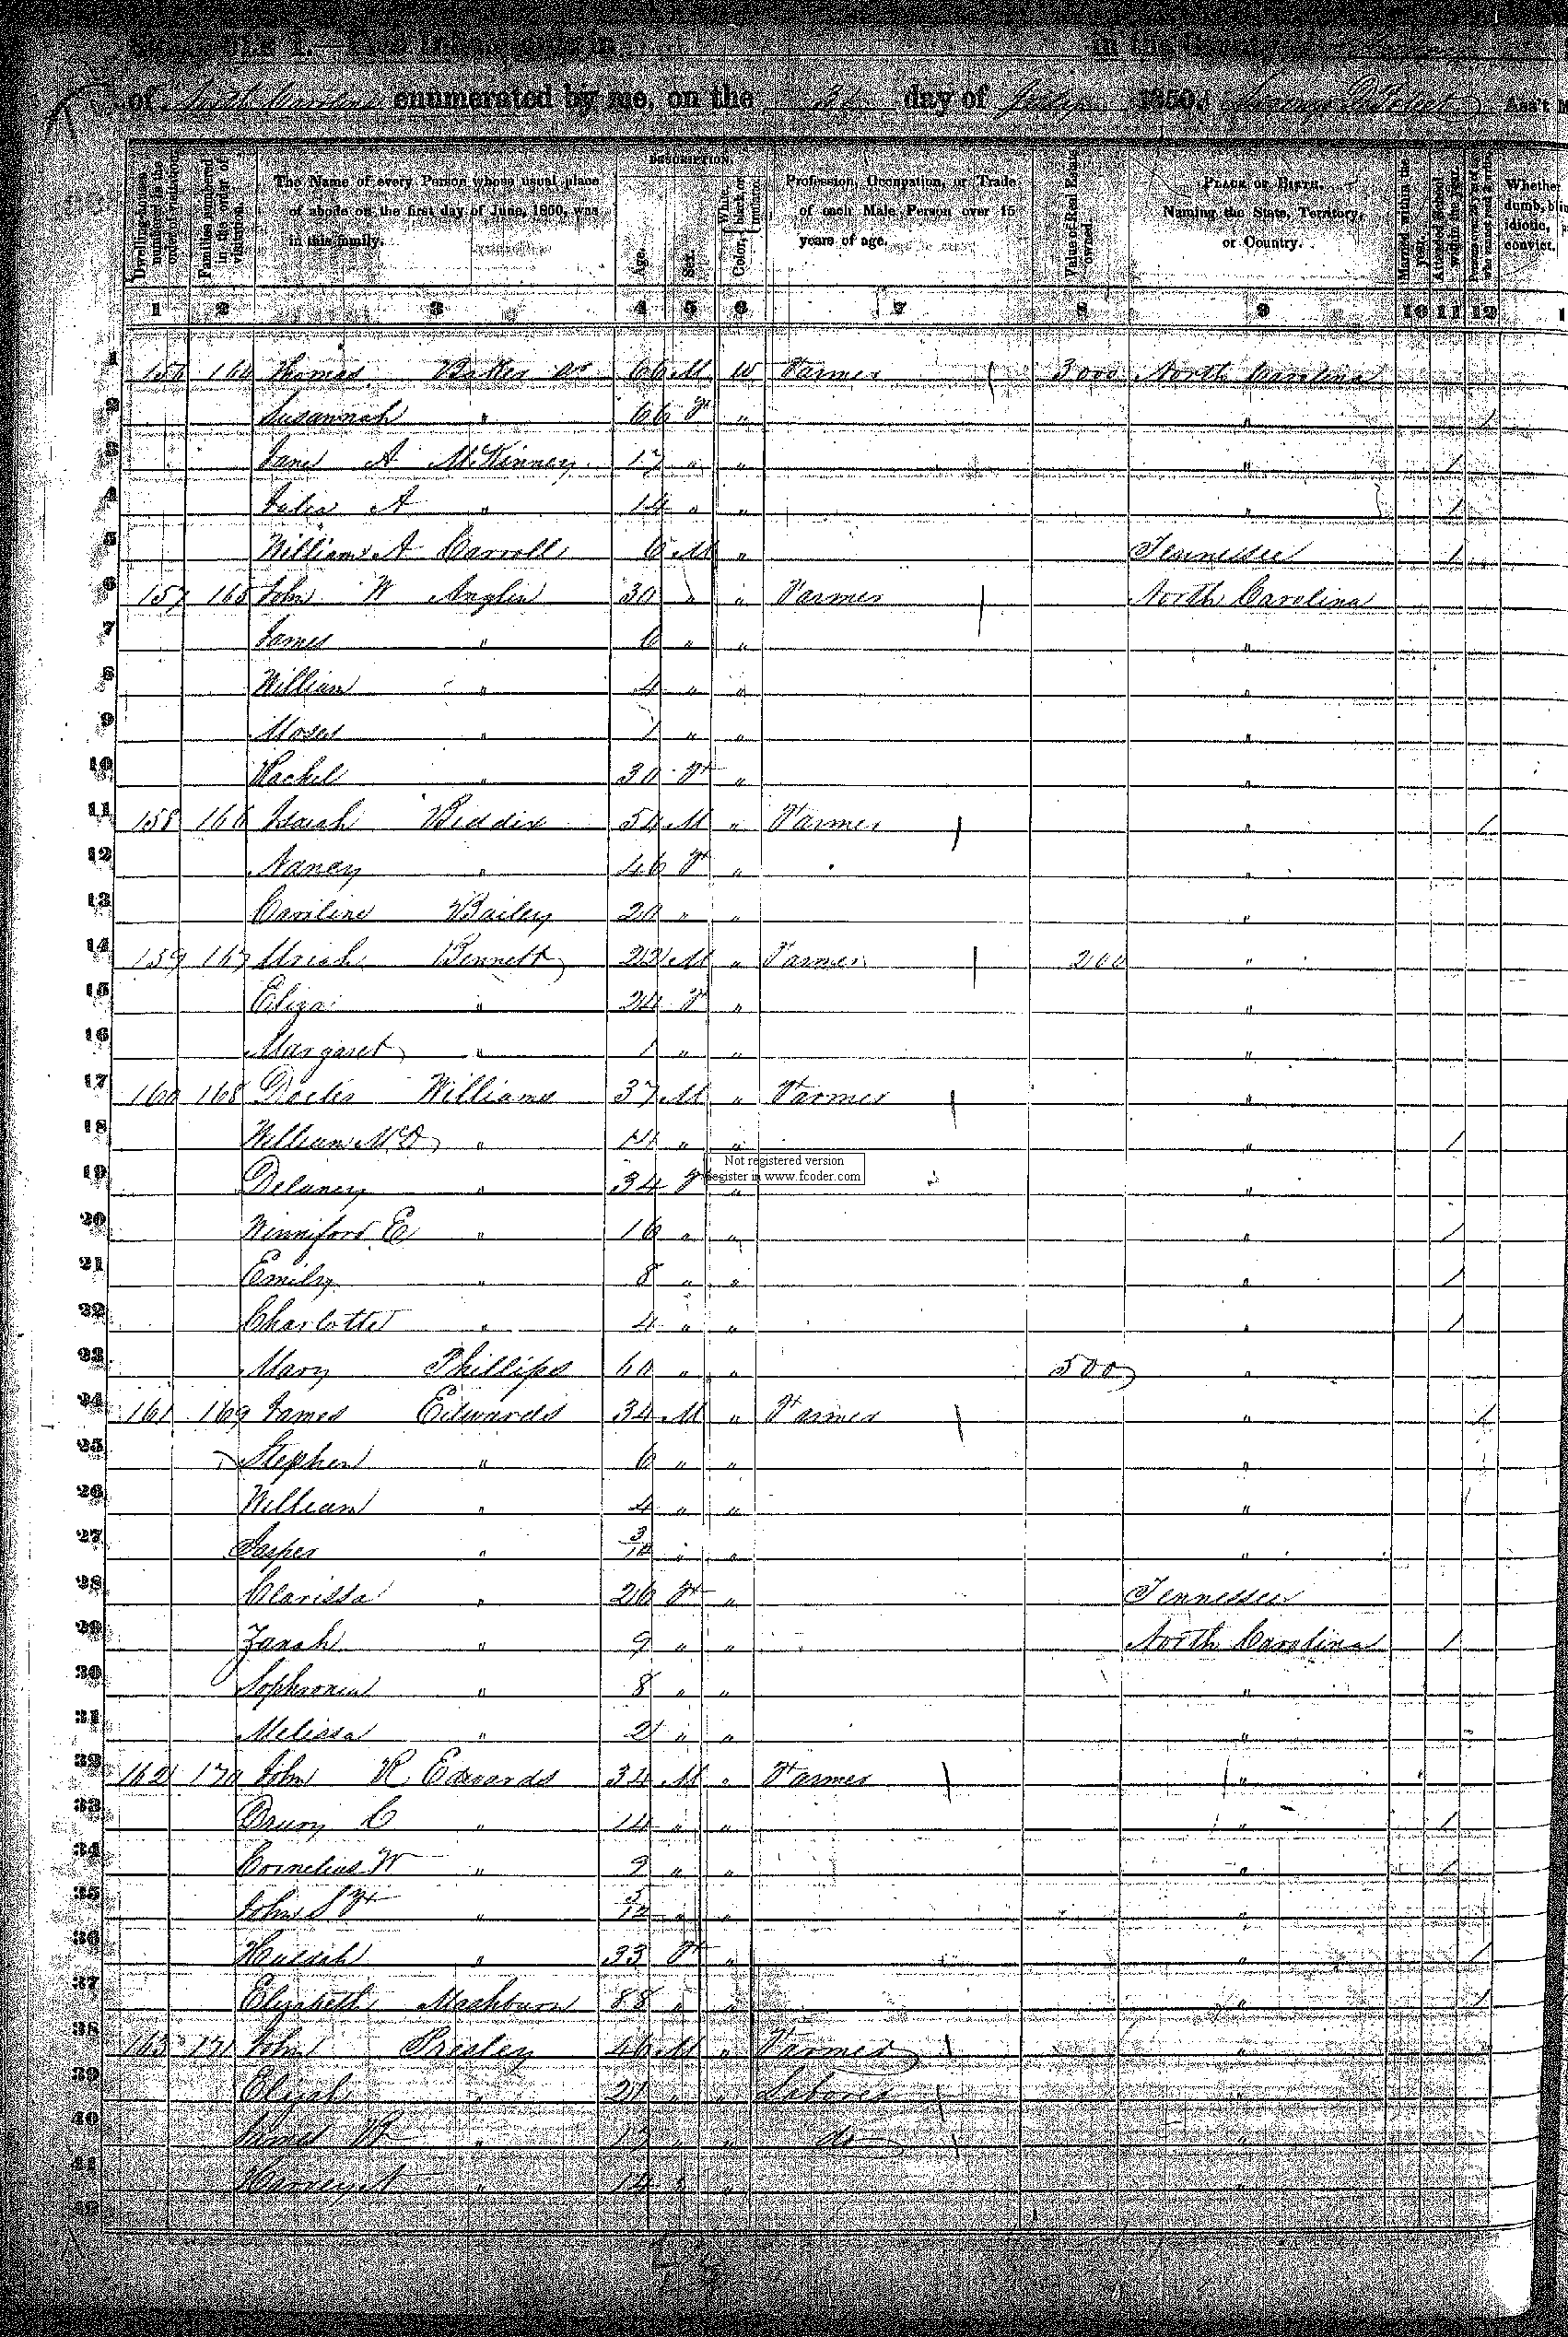 in the County of
of North Carolina enumerated by me, on the 3d day of 1850. Ass't
DESCRIPTION.
Dwelling-houses numbered in the order of visitation.
Families numbered in the order of visitation.
The Name of every Person whose usual place of abode on the first day of June, 1850, was in this family.
Age.
Sex.
Color, White, black, or mulatto.
Profession, Occupation, or Trade of each Male Person over 15 years of age.
Value of Real Estate owned.
PLACE OF BIRTH. Naming the State, Territory, or Country.
Married within the year.
Attended School within the year.
Persons over 20 y'rs of age who cannot read & write.
Whether dumb, idiotic, convict.
1 2 3 4 5 6 7 8 9 10 11 12
1 156 164 Thomas Baker 66 M W Farmer 3000 North Carolina
2 Susannah " 66 F " " 1
3 Jane A McKinney 17 " " " 1
4 Julia A " 14 " " " 1
5 William A Carroll 6 M " Tennessee 1
6 157 165 John W Anglin 30 " " Farmer North Carolina
7 James " 6 " " "
8 William " 4 " " "
9 Moses " 1 " " "
10 Rachel " 30 F " "
11 158 166 Isaiah Biddix 54 M " Farmer " 1
12 Nancy " 46 F " "
13 Caroline Bailey 20 " " "
14 159 167 Uriah Bennett 22 M " Farmer 200 "
15 Eliza " 24 F " "
16 Margaret " 1 " " "
17 160 168 Williams 37 M " Farmer "
18 William McD " 14 " " " 1
Not registered version
Register in www.fcoder.com
19 Delaney " 34 F " "
20 Winniford E " 16 " " " 1
21 Emily " 8 " " " 1
22 Charlotte " 4 " " " 1
23 Mary Phillips 60 " " 500 "
24 161 169 James Edwards 34 M " Farmer " 1
25 Stephen " 6 " " "
26 William " 4 " " "
27 Jasper " 3/12 " " "
28 Clarissa " 26 F " Tennessee
29 Zanah " 9 " " North Carolina 1
30 Sophronia " 8 " " "
31 Melissa " 2 " " "
32 162 170 John R Edwards 34 M " Farmer "
33 Drury C " 14 " " " 1
34 Cornelius W " 9 " " " 1
35 John S F " 5/12 " " "
36 Huldah " 33 F " " 1
37 Elizabeth Mashburn 88 " " " 1
38 163 171 John Presley 46 M " Farmer "
39 Elijah " 21 " " Laborer "
40 James " 17 " " do "
41 Harvey A " 14 " " "
42